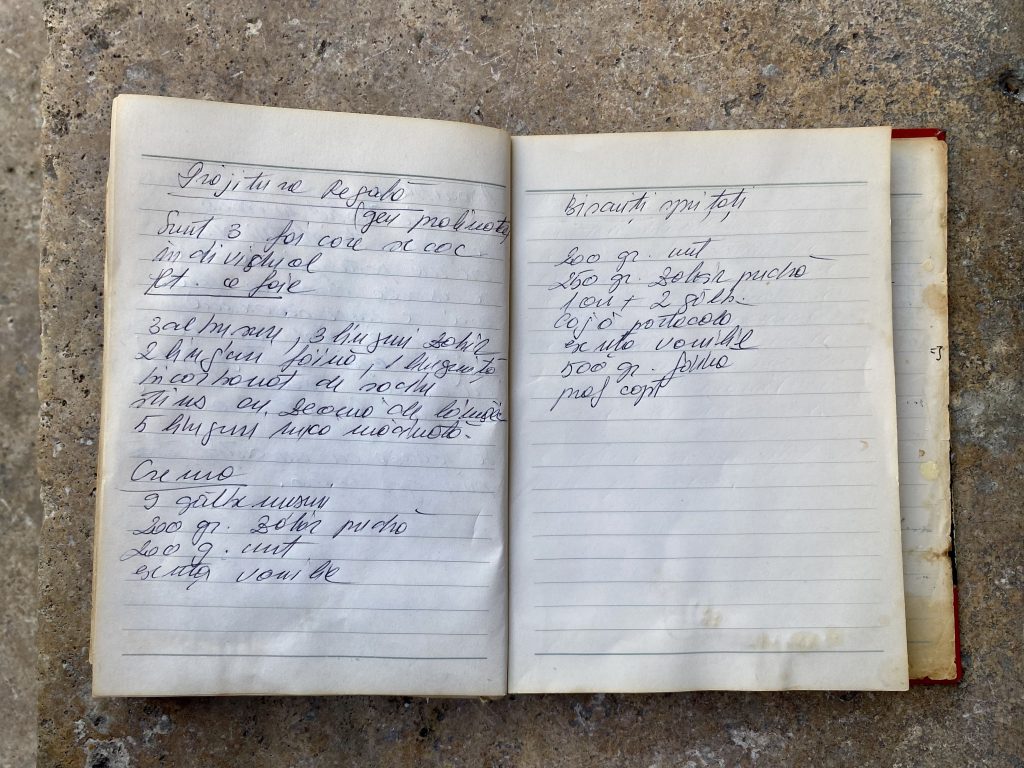 Prajitura Regală
(gen pralinată)
Sunt 3 foi care se coc
individual
Pt. o foie
3 albusuri, 3 linguri zahăr
2 linguri făină, 1 linguriță
bicarbonat de sodiu
stins cu zeamă de lămâie
5 linguri nucă măcinată.
Crema
9 gălbenusuri
200 gr. zahăr pudră
200 g. unt
esență vanilie
Biscuiti spritați
200 gr. unt
250 gr. zahăr pudră
1 ou + 2 gălb.
coajă portocală
esență vanilie
500 gr. făină
praf copt